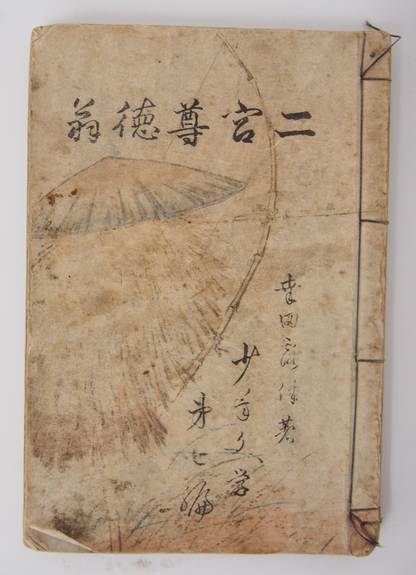 二宮尊徳翁
幸田露伴著
少年文学
第七編